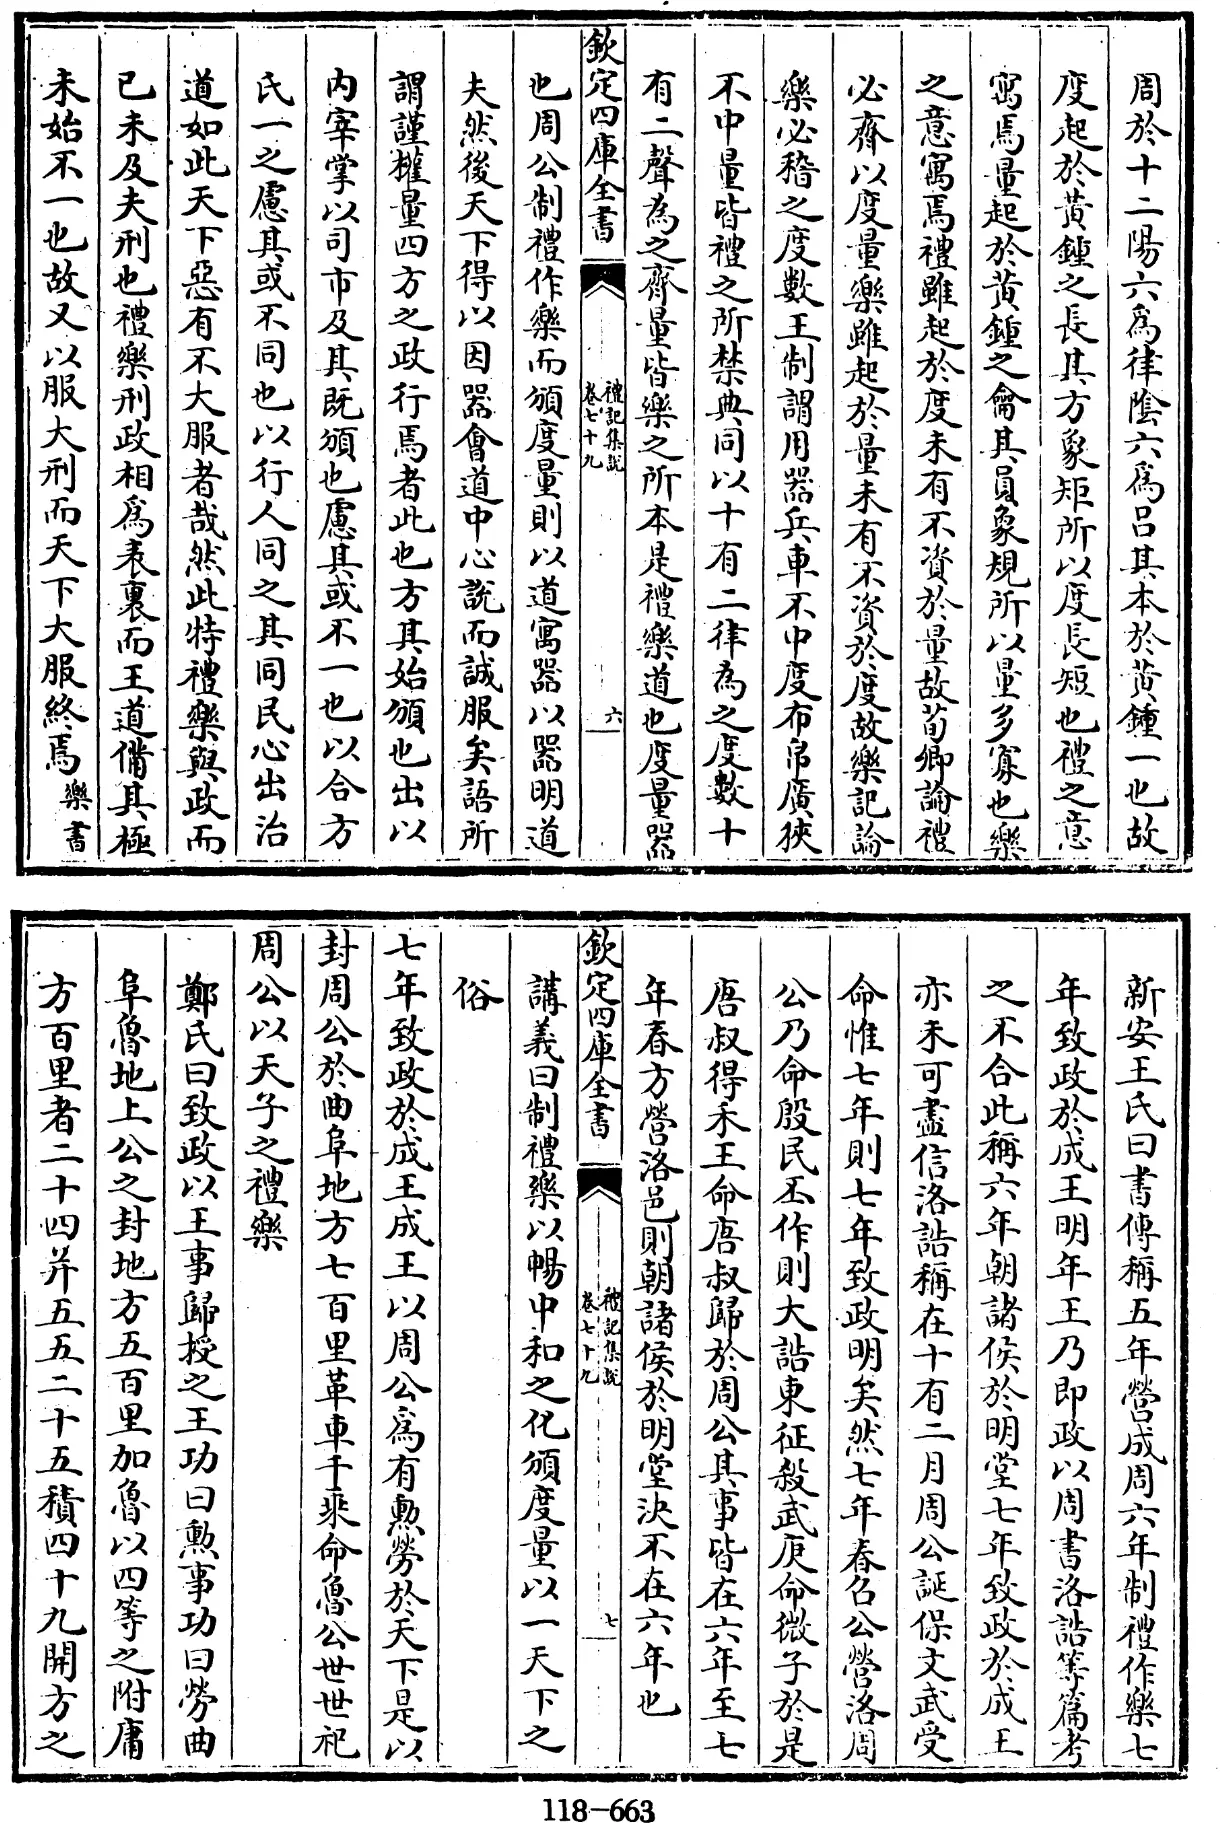 周於十二陽六爲律陰六爲呂其本於黃鍾一也故
度起於黃鍾之長其方象矩所以度長短也禮之意
寓焉量起於黃鍾之龠其員象規所以量多寡也樂
之意寓焉禮雖起於度未有不資於量故荀卿論禮
必齊以度量樂雖起於量未有不資於度故樂記論
樂必稽之度數王制謂用器兵車不中度布帛廣狹
不中量皆禮之所禁典同以十有二律為之度數十
有二聲為之齊量皆樂之所本是禮樂道也度量器
欽定四庫全書
禮記集說
卷七十九
六
也周公制禮作樂而頒度量則以道寓器以器明道
夫然後天下得以因器會道中心說而誠服矣語所
謂謹權量四方之政行焉者此也方其始頒也出以
内宰掌以司市及其既頒也慮其或不一也以合方
氏一之慮其或不同也以行人同之其同民心出治
道如此天下惡有不大服者哉然此特禮樂與政而
已未及夫刑也禮樂刑政相爲表裏而王道備其極
未始不一也故又以服大刑而天下大服終焉 樂書
新安王氏曰書傳稱五年營成周六年制禮作樂七
年致政於成王明年王乃即政以周書洛誥等篇考
之不合此稱六年朝諸侯於明堂七年致政於成王
亦未可盡信洛誥稱在十有二月周公誕保文武受
命惟七年則七年致政明矣然七年春召公營洛周
公乃命殷民丕作則大誥東征殺武庚命微子於是
唐叔得禾王命唐叔歸於周公其事皆在六年至七
年春方營洛邑則朝諸侯於明堂決不在六年也
欽定四庫全書
禮記集說
卷七十九
七
講義曰制禮樂以暢中和之化頒度量以一天下之
俗
七年致政於成王成王以周公爲有勲勞於天下是以
封周公於曲阜地方七百里革車千乘命魯公世世祀
周公以天子之禮樂
鄭氏曰致政以王事歸授之王功曰勲事功曰勞曲
阜魯地上公之封地方五百里加魯以四等之附庸
方百里者二十四并五五二十五積四十九開方之
118-663